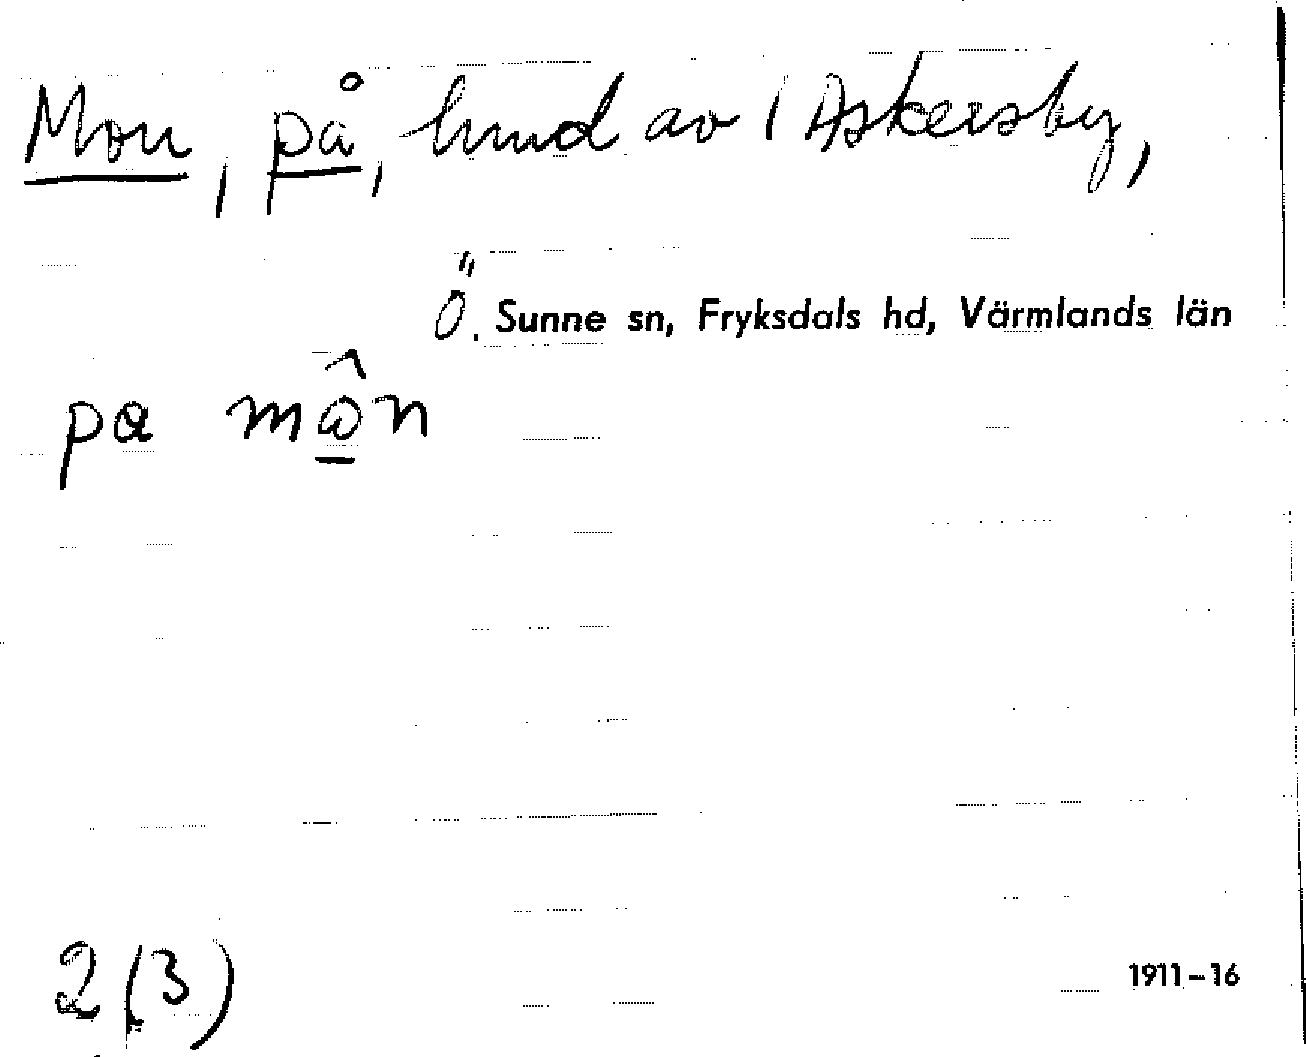 Mon, på, hmd av 1 Askersby,
Ö. Sunne sn, Fryksdals hd, Värmlands län
pa môn
2(3)
1911-16